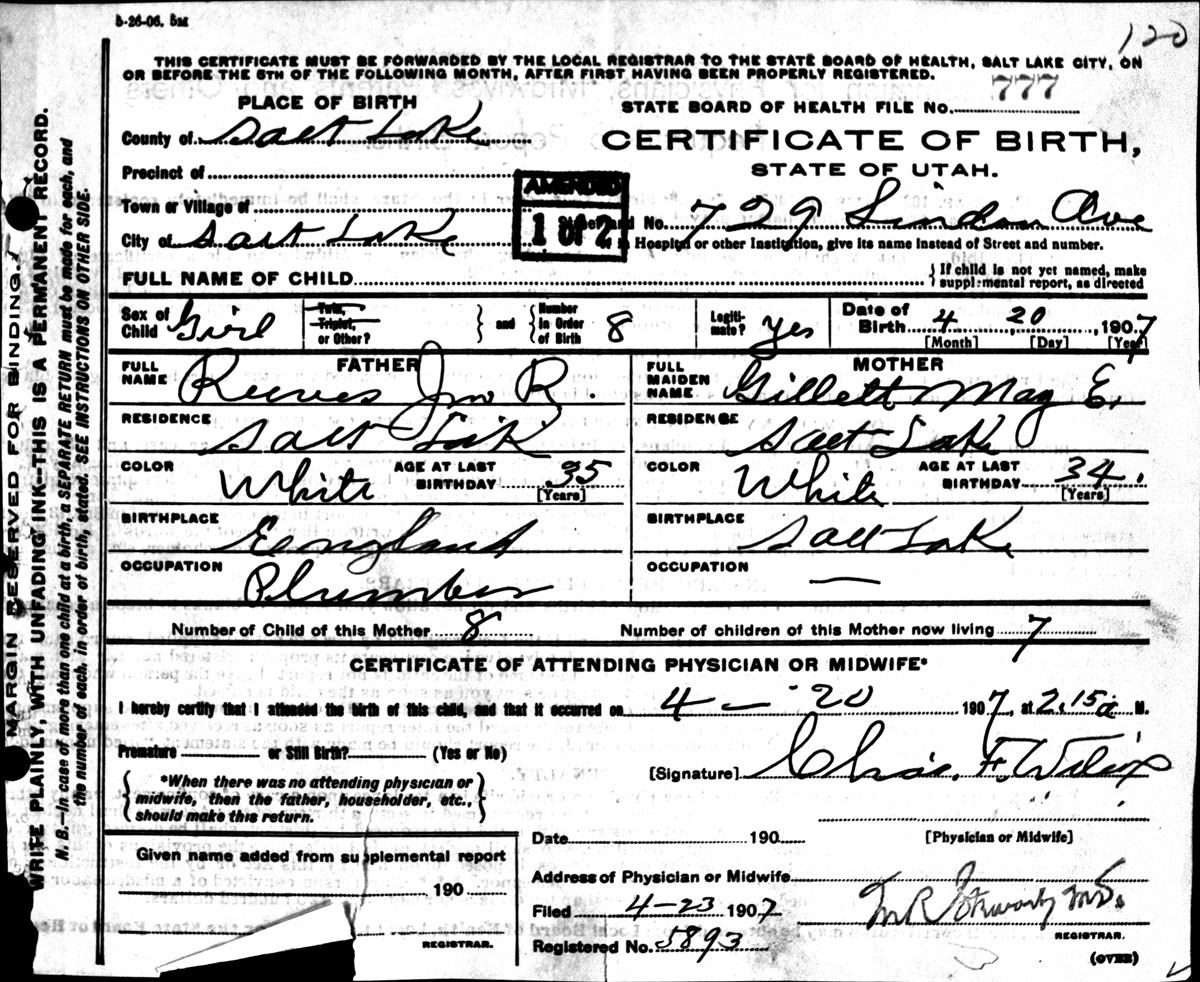 5-26-06. 5M
120
THIS CERTIFICATE MUST BE FORWARDED BY THE LOCAL REGISTRAR TO THE STATE BOARD OF HEALTH, SALT LAKE CITY, ON
OR BEFORE THE 5TH OF THE FOLLOWING MONTH, AFTER FIRST HAVING BEEN PROPERLY REGISTERED.
PLACE OF BIRTH
STATE BOARD OF HEALTH FILE No. 777
County of Salt Lake
CERTIFICATE OF BIRTH,
STATE OF UTAH.
Precinct of
AMENDED
1 OF 2
Town or Village of
and No. 729 Lindon Ave
City of Salt Lake
in Hospital or other Institution, give its name instead of Street and number.
FULL NAME OF CHILD
} If child is not yet named, make
supplemental report, as directed
Sex of Child Girl
Twin, Triplet, or Other?
} and {
Number in Order of Birth 8
Legiti-mate? Yes
Date of Birth 4 20, 1907
[Month] [Day] [Year]
FATHER
FULL NAME Reeves Jno R.
MOTHER
FULL MAIDEN NAME Gillett May E.
RESIDENCE Salt Lake
RESIDENCE Salt Lake
COLOR White
AGE AT LAST BIRTHDAY 35 [Years]
COLOR White
AGE AT LAST BIRTHDAY 34. [Years]
BIRTHPLACE England
BIRTHPLACE Salt Lake
OCCUPATION Plumber
OCCUPATION —
Number of Child of this Mother 8
Number of children of this Mother now living 7
CERTIFICATE OF ATTENDING PHYSICIAN OR MIDWIFE*
I hereby certify that I attended the birth of this child, and that it occurred on 4 - 20 1907, at 2.15 a M.
Premature or Still Birth? (Yes or No)
[Signature] Chas. F. Wilcox
{ *When there was no attending physician or
midwife, then the father, householder, etc.,
should make this return. }
Date 190
[Physician or Midwife]
Given name added from supplemental report
190
REGISTRAR.
Address of Physician or Midwife
Filed 4-23 1907
M.D.
REGISTRAR.
Registered No. 5893
(OVER)
MARGIN RESERVED FOR BINDING.
WRITE PLAINLY, WITH UNFADING INK—THIS IS A PERMANENT RECORD.
N. B.—In case of more than one child at a birth, a SEPARATE RETURN must be made for each, and
the number of each, in order of birth, stated. SEE INSTRUCTIONS ON OTHER SIDE.